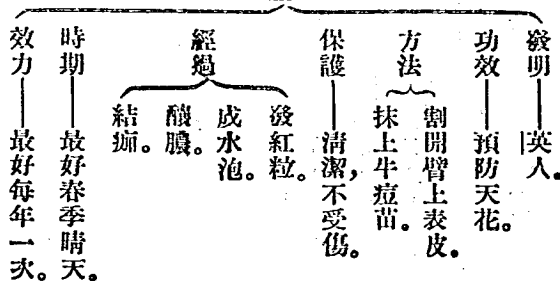 發明——英人。
功效——預防天花。
方法
割開臂上表皮。
抹上牛痘苗。
保護——清潔，不受傷。
經過
發紅粒。
成水泡。
釀膿。
結痂。
時期——最好春季晴天。
效力——最好每年一次。